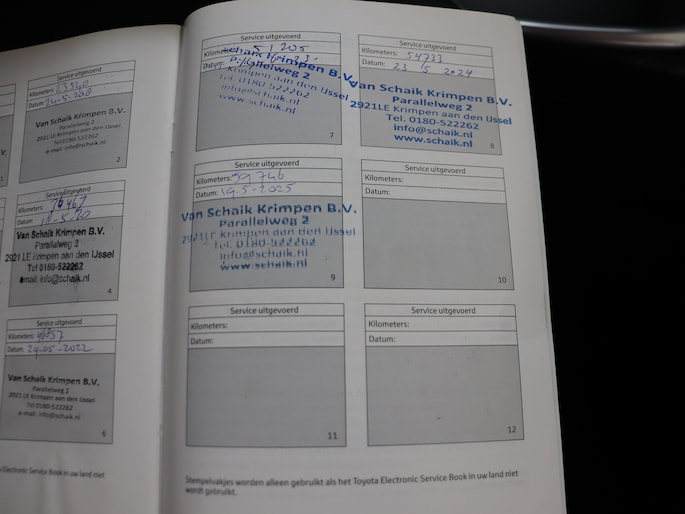 Service uitgevoerd
Kilometers:
Datum: 24-5-2018
Van Schaik Krimpen B.V.
Parallelweg 2
2921 LE Krimpen aan den IJssel
Tel 0180-522262
e-mail: info@schaik.nl
2
Service uitgevoerd
Kilometers:
Datum:
Van Schaik Krimpen B.V.
Parallelweg 2
2921 LE Krimpen aan den IJssel
Tel 0180-522262
email: info@schaik.nl
4
Service uitgevoerd
Kilometers:
Datum: 24-05-2022
Van Schaik Krimpen B.V.
Parallelweg 2
2921 LE Krimpen aan den IJssel
Tel 0180-522262
e-mail: info@schaik.nl
6
Electronic Service Book in uw land niet
Service uitgevoerd
Kilometers: 51205
Datum:
Van Schaik Krimpen B.V.
Parallelweg 2
Krimpen aan den IJssel
Tel. 0180-522262
info@schaik.nl
www.schaik.nl
7
Service uitgevoerd
Kilometers: 54733
Datum: 23 5 2024
Van Schaik Krimpen B.V.
Parallelweg 2
2921LE Krimpen aan den IJssel
Tel. 0180-522262
info@schaik.nl
www.schaik.nl
8
Service uitgevoerd
Kilometers: 59746
Datum: 19-5-2025
Van Schaik Krimpen B.V.
Parallelweg 2
2921 LE Krimpen aan den IJssel
Tel. 0180-522262
info@schaik.nl
www.schaik.nl
9
Service uitgevoerd
Kilometers:
Datum:
10
Service uitgevoerd
Kilometers:
Datum:
11
Service uitgevoerd
Kilometers:
Datum:
12
Stempelvakjes worden alleen gebruikt als het Toyota Electronic Service Book in uw land niet
wordt gebruikt.